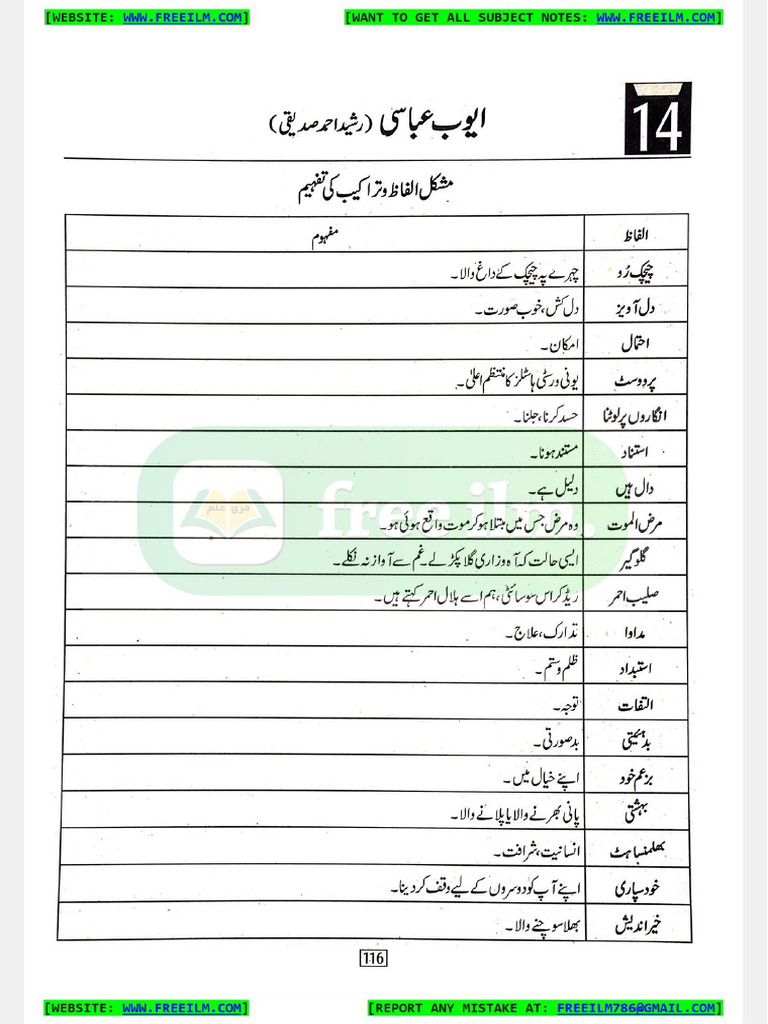 [WEBSITE: WWW.FREEILM.COM] [WANT TO GET ALL SUBJECT NOTES: WWW.FREEILM.COM]
14 ایوب عباسی (رشید احمد صدیقی)
مشکل الفاظ و تراکیب کی تفہیم
الفاظ مفہوم
چیچک رُو چہرے پہ چیچک کے داغ والا۔
دل آویز دل کش، خوب صورت۔
احتمال امکان۔
پرووسٹ یونی ورسٹی ہاسٹلز کا منتظم اعلیٰ۔
انگاروں پر لوٹنا حسد کرنا، جلنا۔
استناد مستند ہونا۔
دال ہیں دلیل ہے۔
مرض الموت وہ مرض جس میں مبتلا ہو کر موت واقع ہوئی ہو۔
گلوگیر ایسی حالت کہ آہ و زاری گلا پکڑ لے۔ غم سے آواز نہ نکلے۔
صلیب احمر ریڈ کراس سوسائٹی، ہم اسے ہلال احمر کہتے ہیں۔
مداوا تدارک، علاج۔
استبداد ظلم و ستم۔
التفات توجہ۔
بد ہئیتی بدصورتی۔
بزعم خود اپنے خیال میں۔
بہشتی پانی بھرنے والا یا پلانے والا۔
بھلمنساہٹ انسانیت، شرافت۔
خود سپاری اپنے آپ کو دوسروں کے لیے وقف کر دینا۔
خیر اندیش بھلا سوچنے والا۔
free ilm.
فری علم
116
[WEBSITE: WWW.FREEILM.COM] [REPORT ANY MISTAKE AT: FREEILM786@GMAIL.COM]